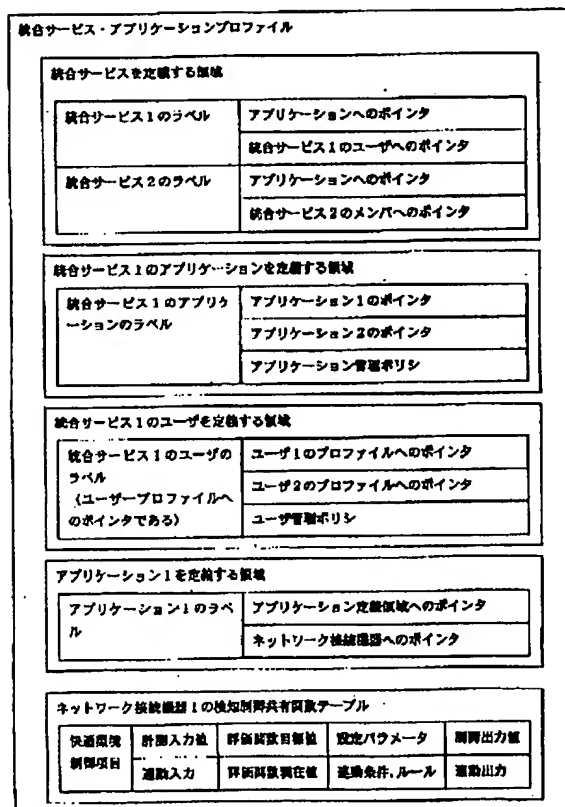 統合サービス・アプリケーションプロファイル
統合サービスを定義する領域
統合サービス1のラベル
アプリケーションへのポインタ
統合サービス1のユーザへのポインタ
統合サービス2のラベル
アプリケーションへのポインタ
統合サービス2のメンバへのポインタ
統合サービス1のアプリケーションを定義する領域
統合サービス1のアプリケ
ーションのラベル
アプリケーション1のポインタ
アプリケーション2のポインタ
アプリケーション管理ポリシ
統合サービス1のユーザを定義する領域
統合サービス1のユーザの
ラベル
(ユーザープロファイルへ
のポインタである)
ユーザ1のプロファイルへのポインタ
ユーザ2のプロファイルへのポインタ
ユーザ管理ポリシ
アプリケーション1を定義する領域
アプリケーション1のラベ
ル
アプリケーション定義領域へのポインタ
ネットワーク接続機器へのポインタ
ネットワーク接続機器1の検知制御共有関数テーブル
快適環境
制御項目
計測入力値
評価関数目標値
設定パラメータ
制御出力値
連動入力
評価関数現在値
連動条件、ルール
連動出力